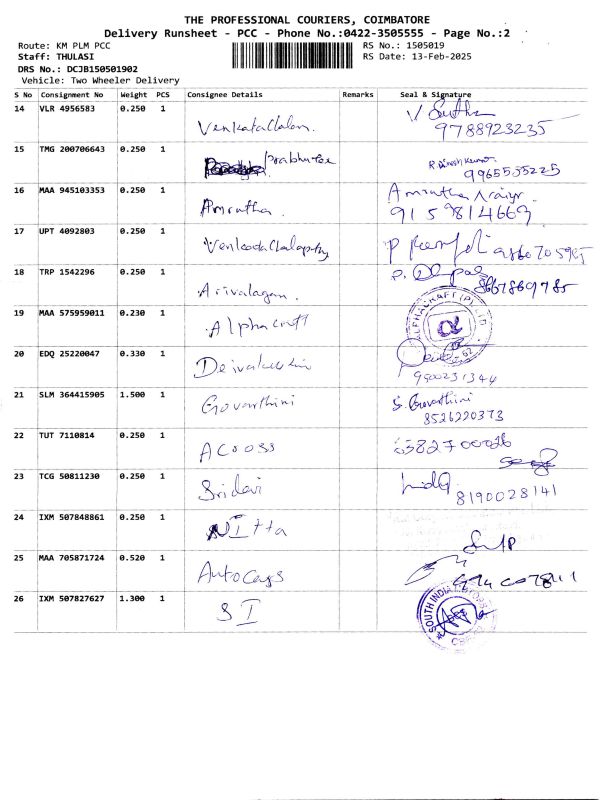 THE PROFESSIONAL COURIERS, COIMBATORE
Delivery Runsheet - PCC - Phone No.:0422-3505555 - Page No.:2
Route: KM PLM PCC RS No.: 1505019
Staff: THULASI RS Date: 13-Feb-2025
DRS No.: DCJB150501902
Vehicle: Two Wheeler Delivery
S No Consignment No Weight PCS Consignee Details Remarks Seal & Signature
14 VLR 4956583 0.250 1 Venkatachalam. V Sutha
9788923235
15 TMG 200706643 0.250 1 Prabhu R. Dinesh Kumar
9965535225
16 MAA 945103353 0.250 1 Amrutha. Amrutha
9159814669
17 UPT 4092803 0.250 1 P
18 TRP 1542296 0.250 1 Arivalagan. P.
8667869785
19 MAA 575959011 0.230 1 Alphacraft ALPHACRAFT (P) LTD
20 EDQ 25220047 0.330 1
9900231344
21 SLM 364415905 1.500 1 Govarthini S. Govarthini
8526290373
22 TUT 7110814 0.250 1 Across
23 TCG 50811230 0.250 1 Sridevi
8190028141
24 IXM 507848861 0.250 1 Nitta
25 MAA 705871724 0.520 1 Autocags
26 IXM 507827627 1.300 1 SI SOUTH INDIA